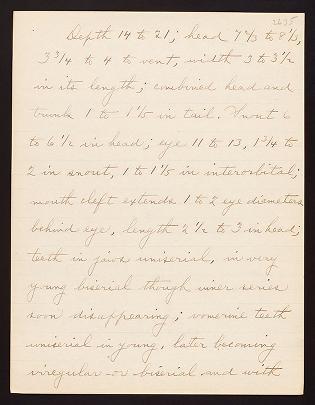 2635
Depth 14 to 21; head 7⅔ to 8⅓,
3¾ to 4 to vent, width 3 to 3½
in its length; combined head and
trunk 1 to 1⅕ in tail. Snout 6
to 6½ in head; eye 11 to 13, 1¾ to
2 in snout, 1 to 1⅕ in interorbital;
mouth cleft extends 1 to 2 eye diameters
behind eye, length 2½ to 3 in head;
teeth in jaws uniserial, in very
young biserial though inner series
soon disappearing; vomerine teeth
uniserial in young, later becoming
irregular or biserial and with